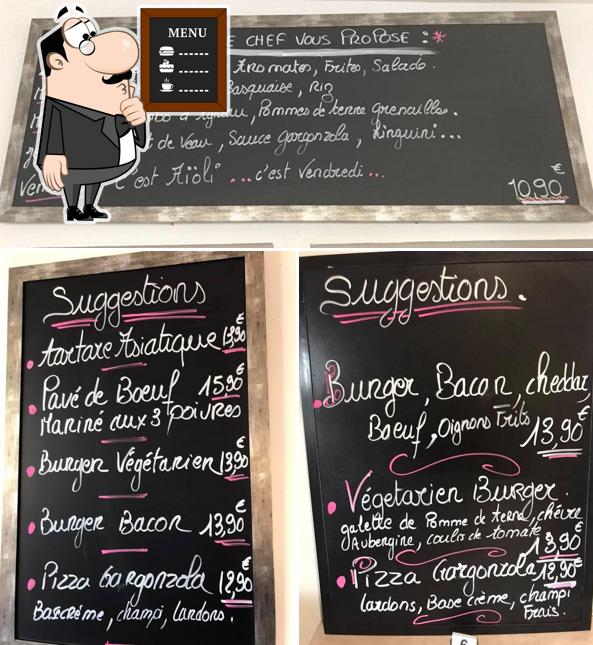 MENU
CHEF VOUS PROPOSE :*
Aromates, Frites, Salade.
Basquaise, Riz
d'Agneau, Pommes de terre grenailles.
de Veau, Sauce gorgonzola, Linguini...
Ven
C'est Aïoli ... c'est Vendredi...
10,90€
Suggestions
Tartare Asiatique 13,90€
Pavé de Boeuf 15,90€
Mariné aux 3 poivres
Burger Végétarien 13,90€
Burger Bacon 13,90€
Pizza Gorgonzola 12,90€
Base crème, champi, lardons.
Suggestions.
Burger, Bacon, cheddar,
Boeuf, Oignons Frits 13,90€
Végetarien Burger.
galette de Pomme de terre, chèvre
Aubergine, coulis de tomate
13,90€
Pizza Gorgonzola 12,90€
lardons, Base crème, champi
Frais.
6